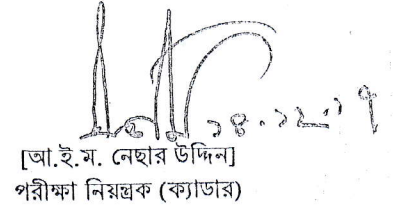 [আ.ই.ম. নেছার উদ্দিন]
পরীক্ষা নিয়ন্ত্রক (ক্যাডার)